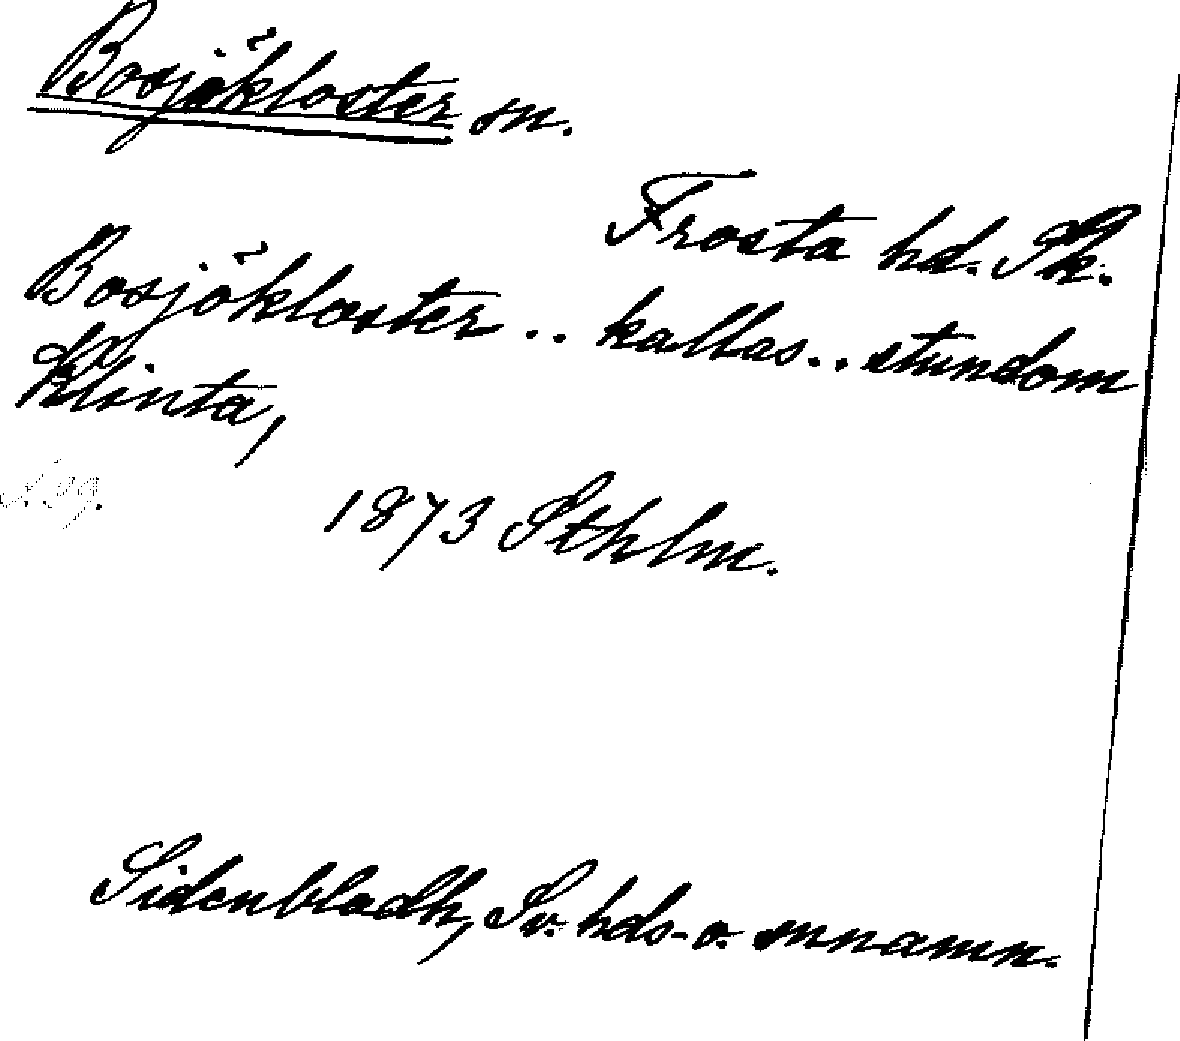 Bosjökloster sn.
Frosta hd. Sk.
Bosjökloster .. kallas .. stundom
Klinta,
1873 Sthlm.
Sidenbladh, Sv. hds- o. snnamn.